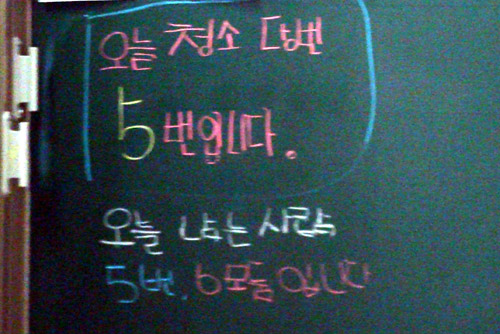 오늘 청소 당번
5번입니다.
오늘 남는 사람
5번, 6모둠입니다